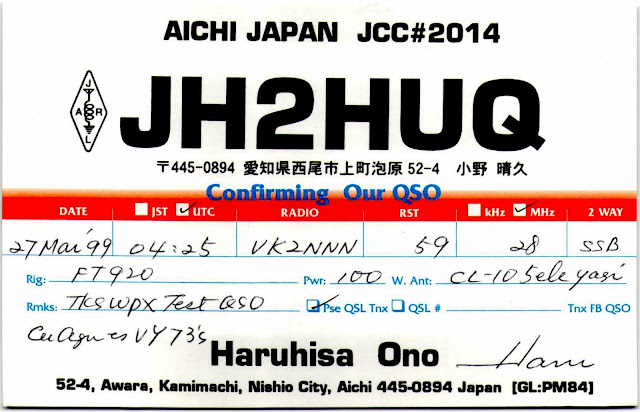 AICHI JAPAN JCC#2014
J
A R
L
JH2HUQ
〒445-0894 愛知県西尾市上町泡原 52-4 小野 晴久
Confirming Our QSO
DATE JST UTC RADIO RST kHz MHz 2 WAY
27 Mar '99 04:25 VK2NNN 59 28 SSB
Rig: FT920 Pwr: 100 W. Ant: CL-10 5ele yagi
Rmks: Tks WPX Test QSO Pse QSL Tnx QSL # Tnx FB QSO
Cu Agn es VY 73's
Haruhisa Ono Haru
52-4, Awara, Kamimachi, Nishio City, Aichi 445-0894 Japan [GL:PM84]